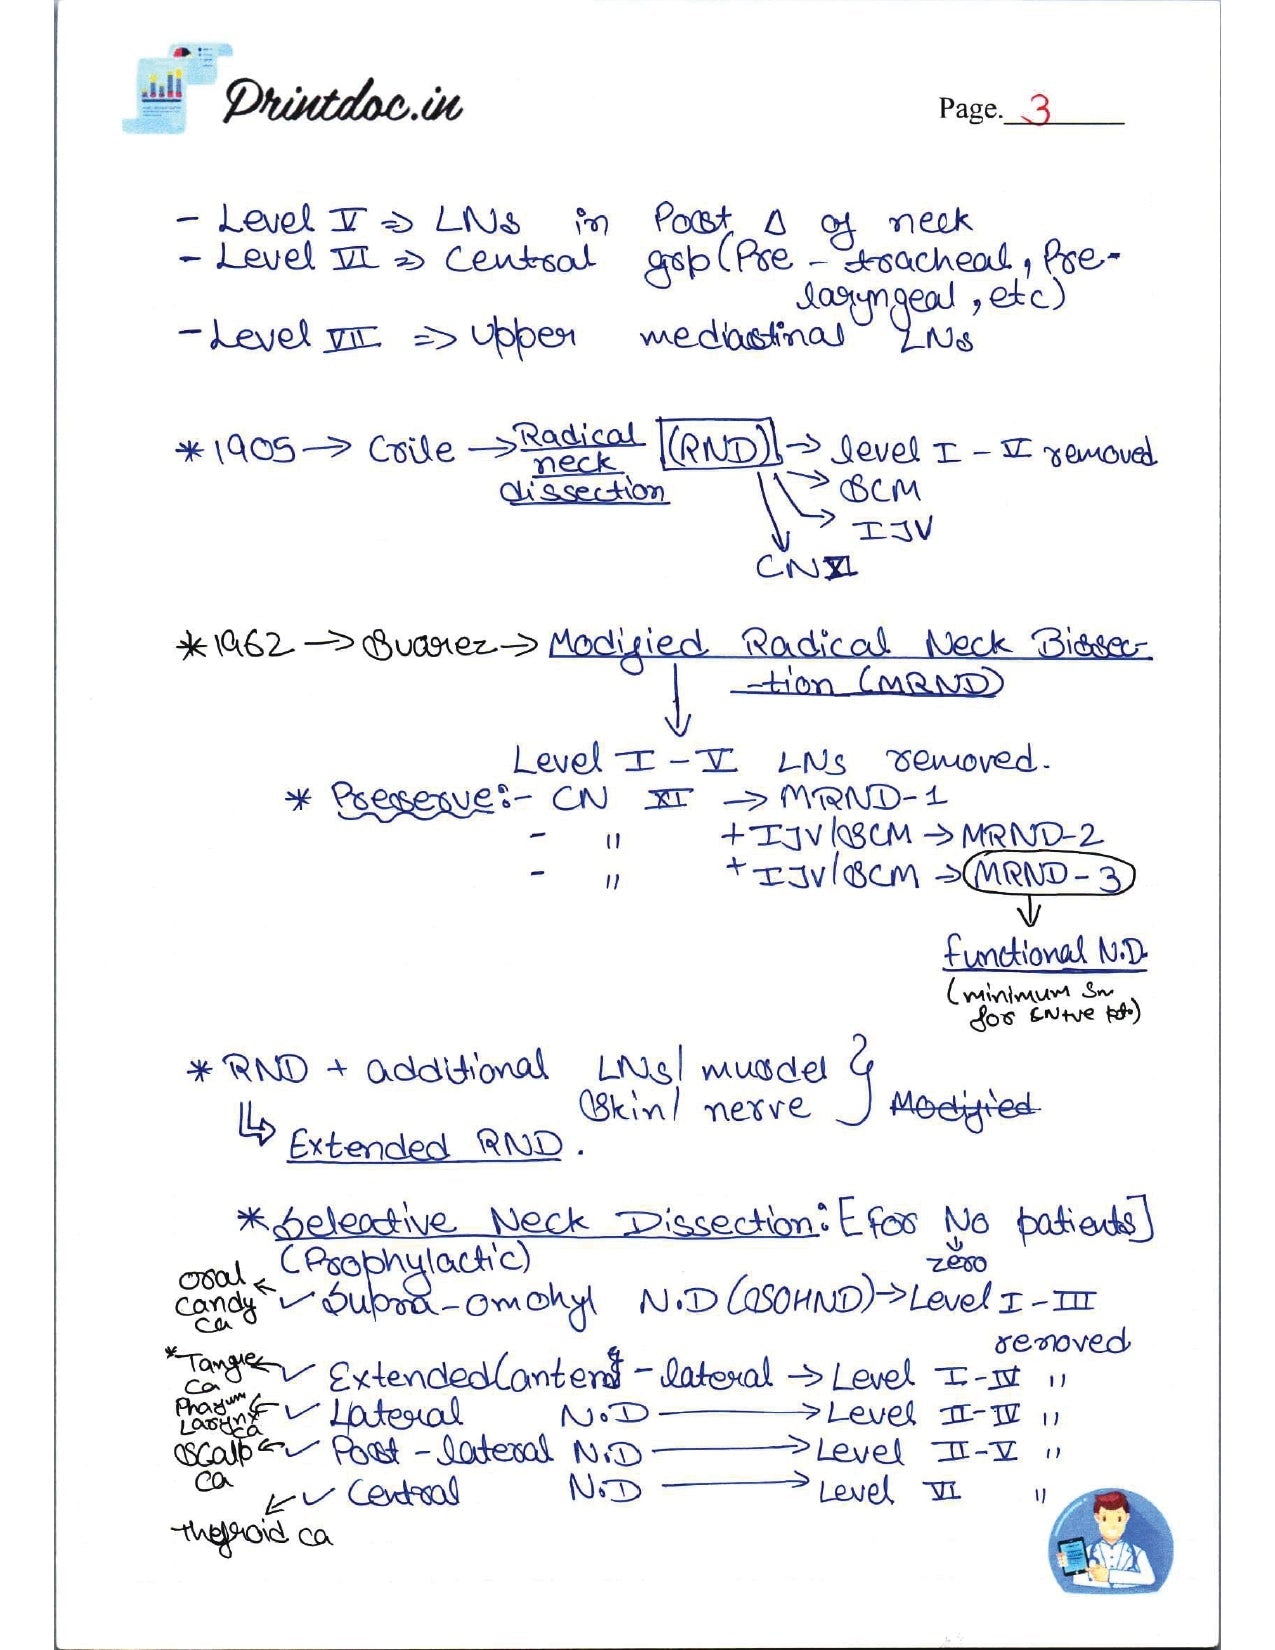 Printdoc.in
Page. 3
- Level V => LNs in Post Δ of neck
- Level VI => Central grp (Pre-tracheal, Pre-
laryngeal, etc)
- Level VII => Upper mediastinal LNs
* 1905 → Crile → Radical neck dissection [(RND)] → level I - V removed
→ SCM
→ IJV
CN XI
* 1962 → Suarez → Modified Radical Neck Dissec-
-tion (MRND)
Level I - V LNs removed.
* Preserve:- CN XI → MRND-1
- " + IJV/SCM → MRND-2
- " + IJV/SCM → MRND-3
functional N.D.
(minimum Sx
for cN+ve pt.)
* RND + additional LNs/ muscle }
Skin/ nerve } Modified
↳ Extended RND.
* Selective Neck Dissection: [for No patients]
(Prophylactic) zero
oral cavity ca ← ✓ Supra-omohyl N.D (SOHND) → Level I - III
removed
* Tongue ca ← ✓ Extended (antero - lateral → Level I-IV "
Pharynx Larynx ca ← ✓ Lateral N.D → Level II-IV "
Scalp ca ← ✓ Post-lateral N.D → Level II-V "
✓ Central N.D → Level VI "
thyroid ca